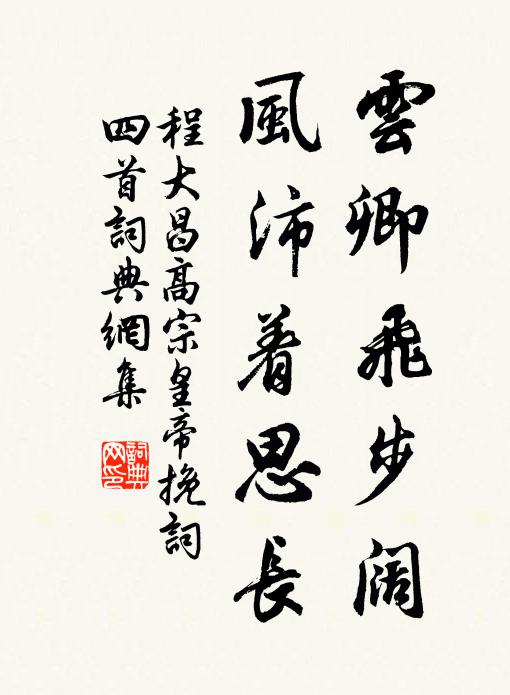 雲卿飛步阔
風沛着思長
程大昌高宗皇帝挽詞
四首詞典網集
詞典
网印